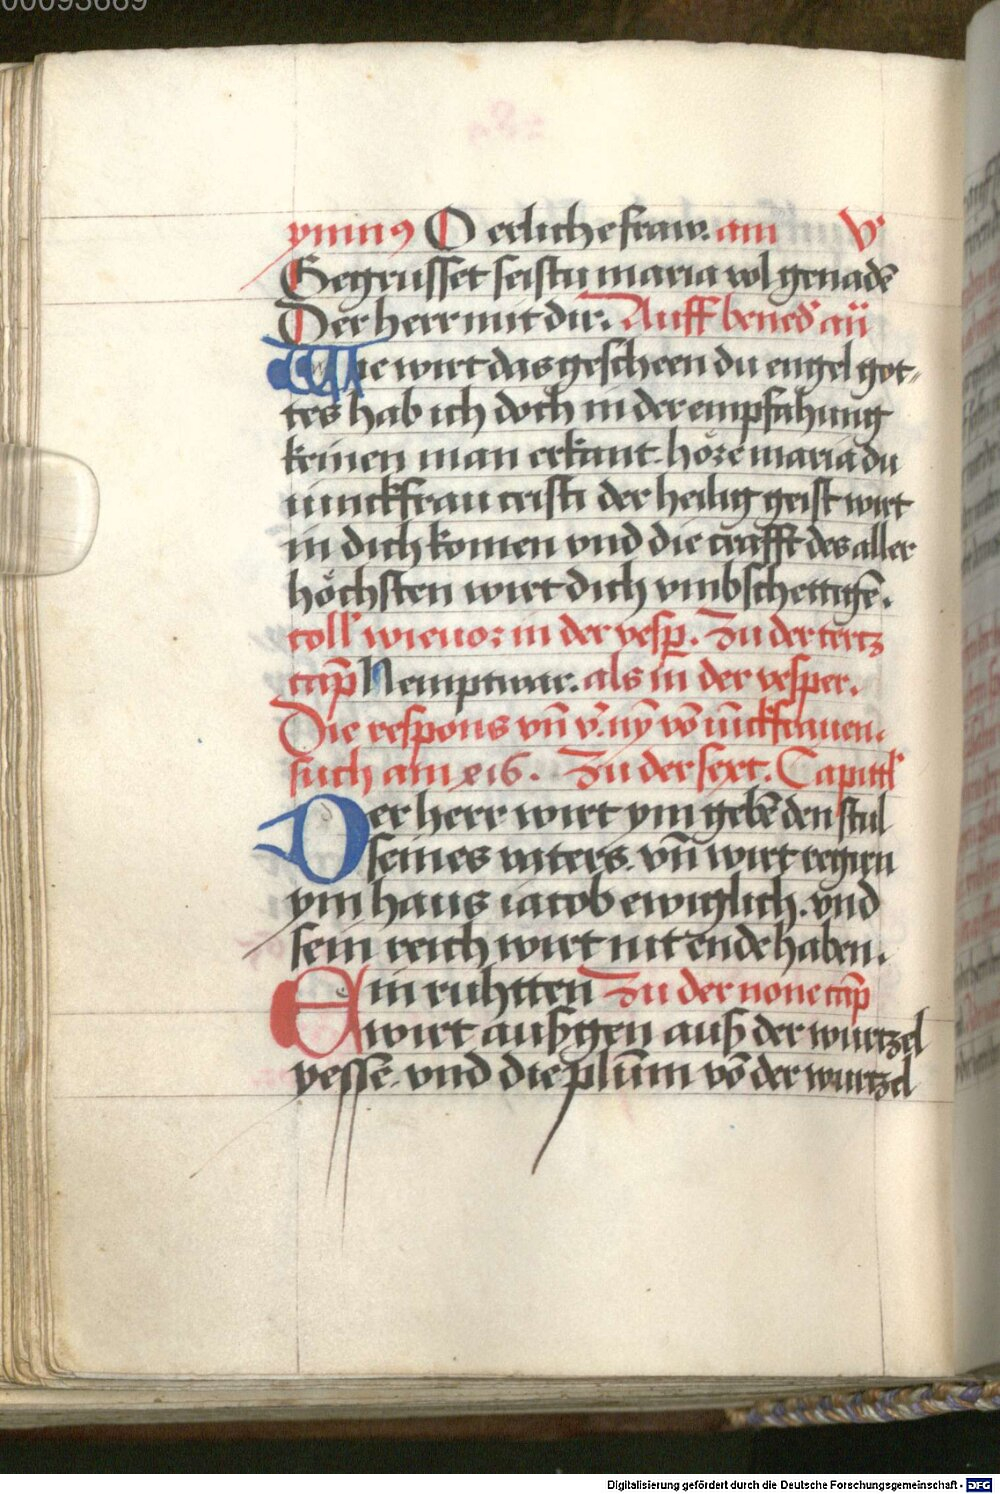 00093669
ymnꝰ O erliche fraw. am V᷎
Gegrusset seistu maria vol genadē
Der herr mit dir. Auff bened᷎ añ
Wie wirt das gescheen du engel got-
tes hab ich doch in der empfahung
keinen man erkant. höre maria du
iunckfrau cristi der heilig geist wirt
in dich komen vnd die crafft des aller
höchsten wirt dich vmbschettigē.
coll wie uor in der vesp̄. Zu der tertz
cap̄ Nempt war. als in der vesper.
Die respons vn̄ v᷎. ny vō iūckfrauen.
such am 216. Zu der sext. Capittl
Der herr wirt ym gebē den stul
seines vaters. vn̄ wirt regirn
ym haus iacob ewiglich. vnd
sein reich wirt nit ende haben.
Ein ruhtten Zu der none cap̄
wirt außgen auß der wurtzel
yessē. vnd die plūm vō der wurtzel
Digitalisierung gefördert durch die Deutsche Forschungsgemeinschaft - DFG